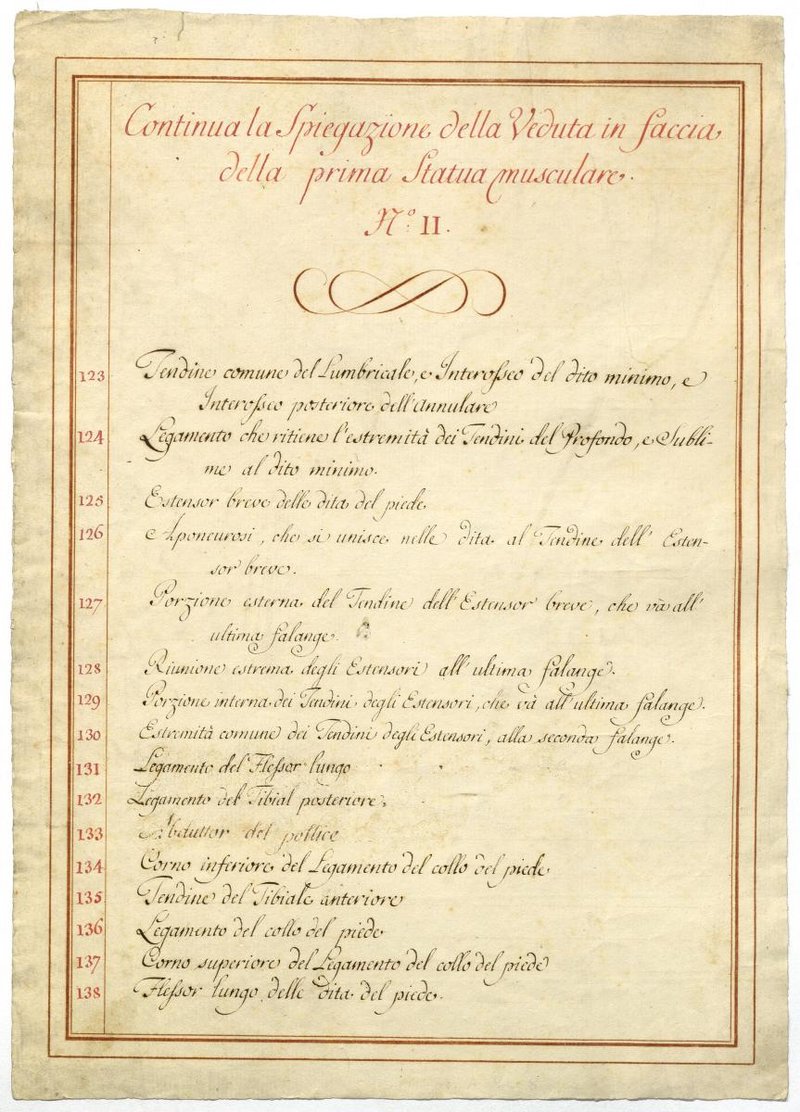 Continua la Spiegazione della Veduta in faccia
della prima Statua musculare.
N.º II.
123 Tendine comune del Lumbricale, e Interosseo del dito minimo, e
Interosseo posteriore dell'annulare
124 Legamento che ritiene l'estremità dei Tendini del Profondo, e Subli-
me al dito minimo.
125 Estensor breve delle dita del piede
126 Aponeurosi, che si unisce nelle dita al Tendine dell' Esten-
sor breve.
127 Porzione esterna del Tendine dell'Estensor breve, che và all'
ultima falange.
128 Riunione estrema degli Estensori all'ultima falange.
129 Porzione interna dei Tendini degli Estensori, che và all'ultima falange.
130 Estremità comune dei Tendini degli Estensori, alla seconda falange.
131 Legamento del Flessor lungo
132 Legamento del Tibial posteriore.
133 Abduttor del pollice
134 Corno inferiore del Legamento del collo del piede
135 Tendine del Tibiale anteriore
136 Legamento del collo del piede
137 Corno superiore del Legamento del collo del piede
138 Flessor lungo delle dita del piede.